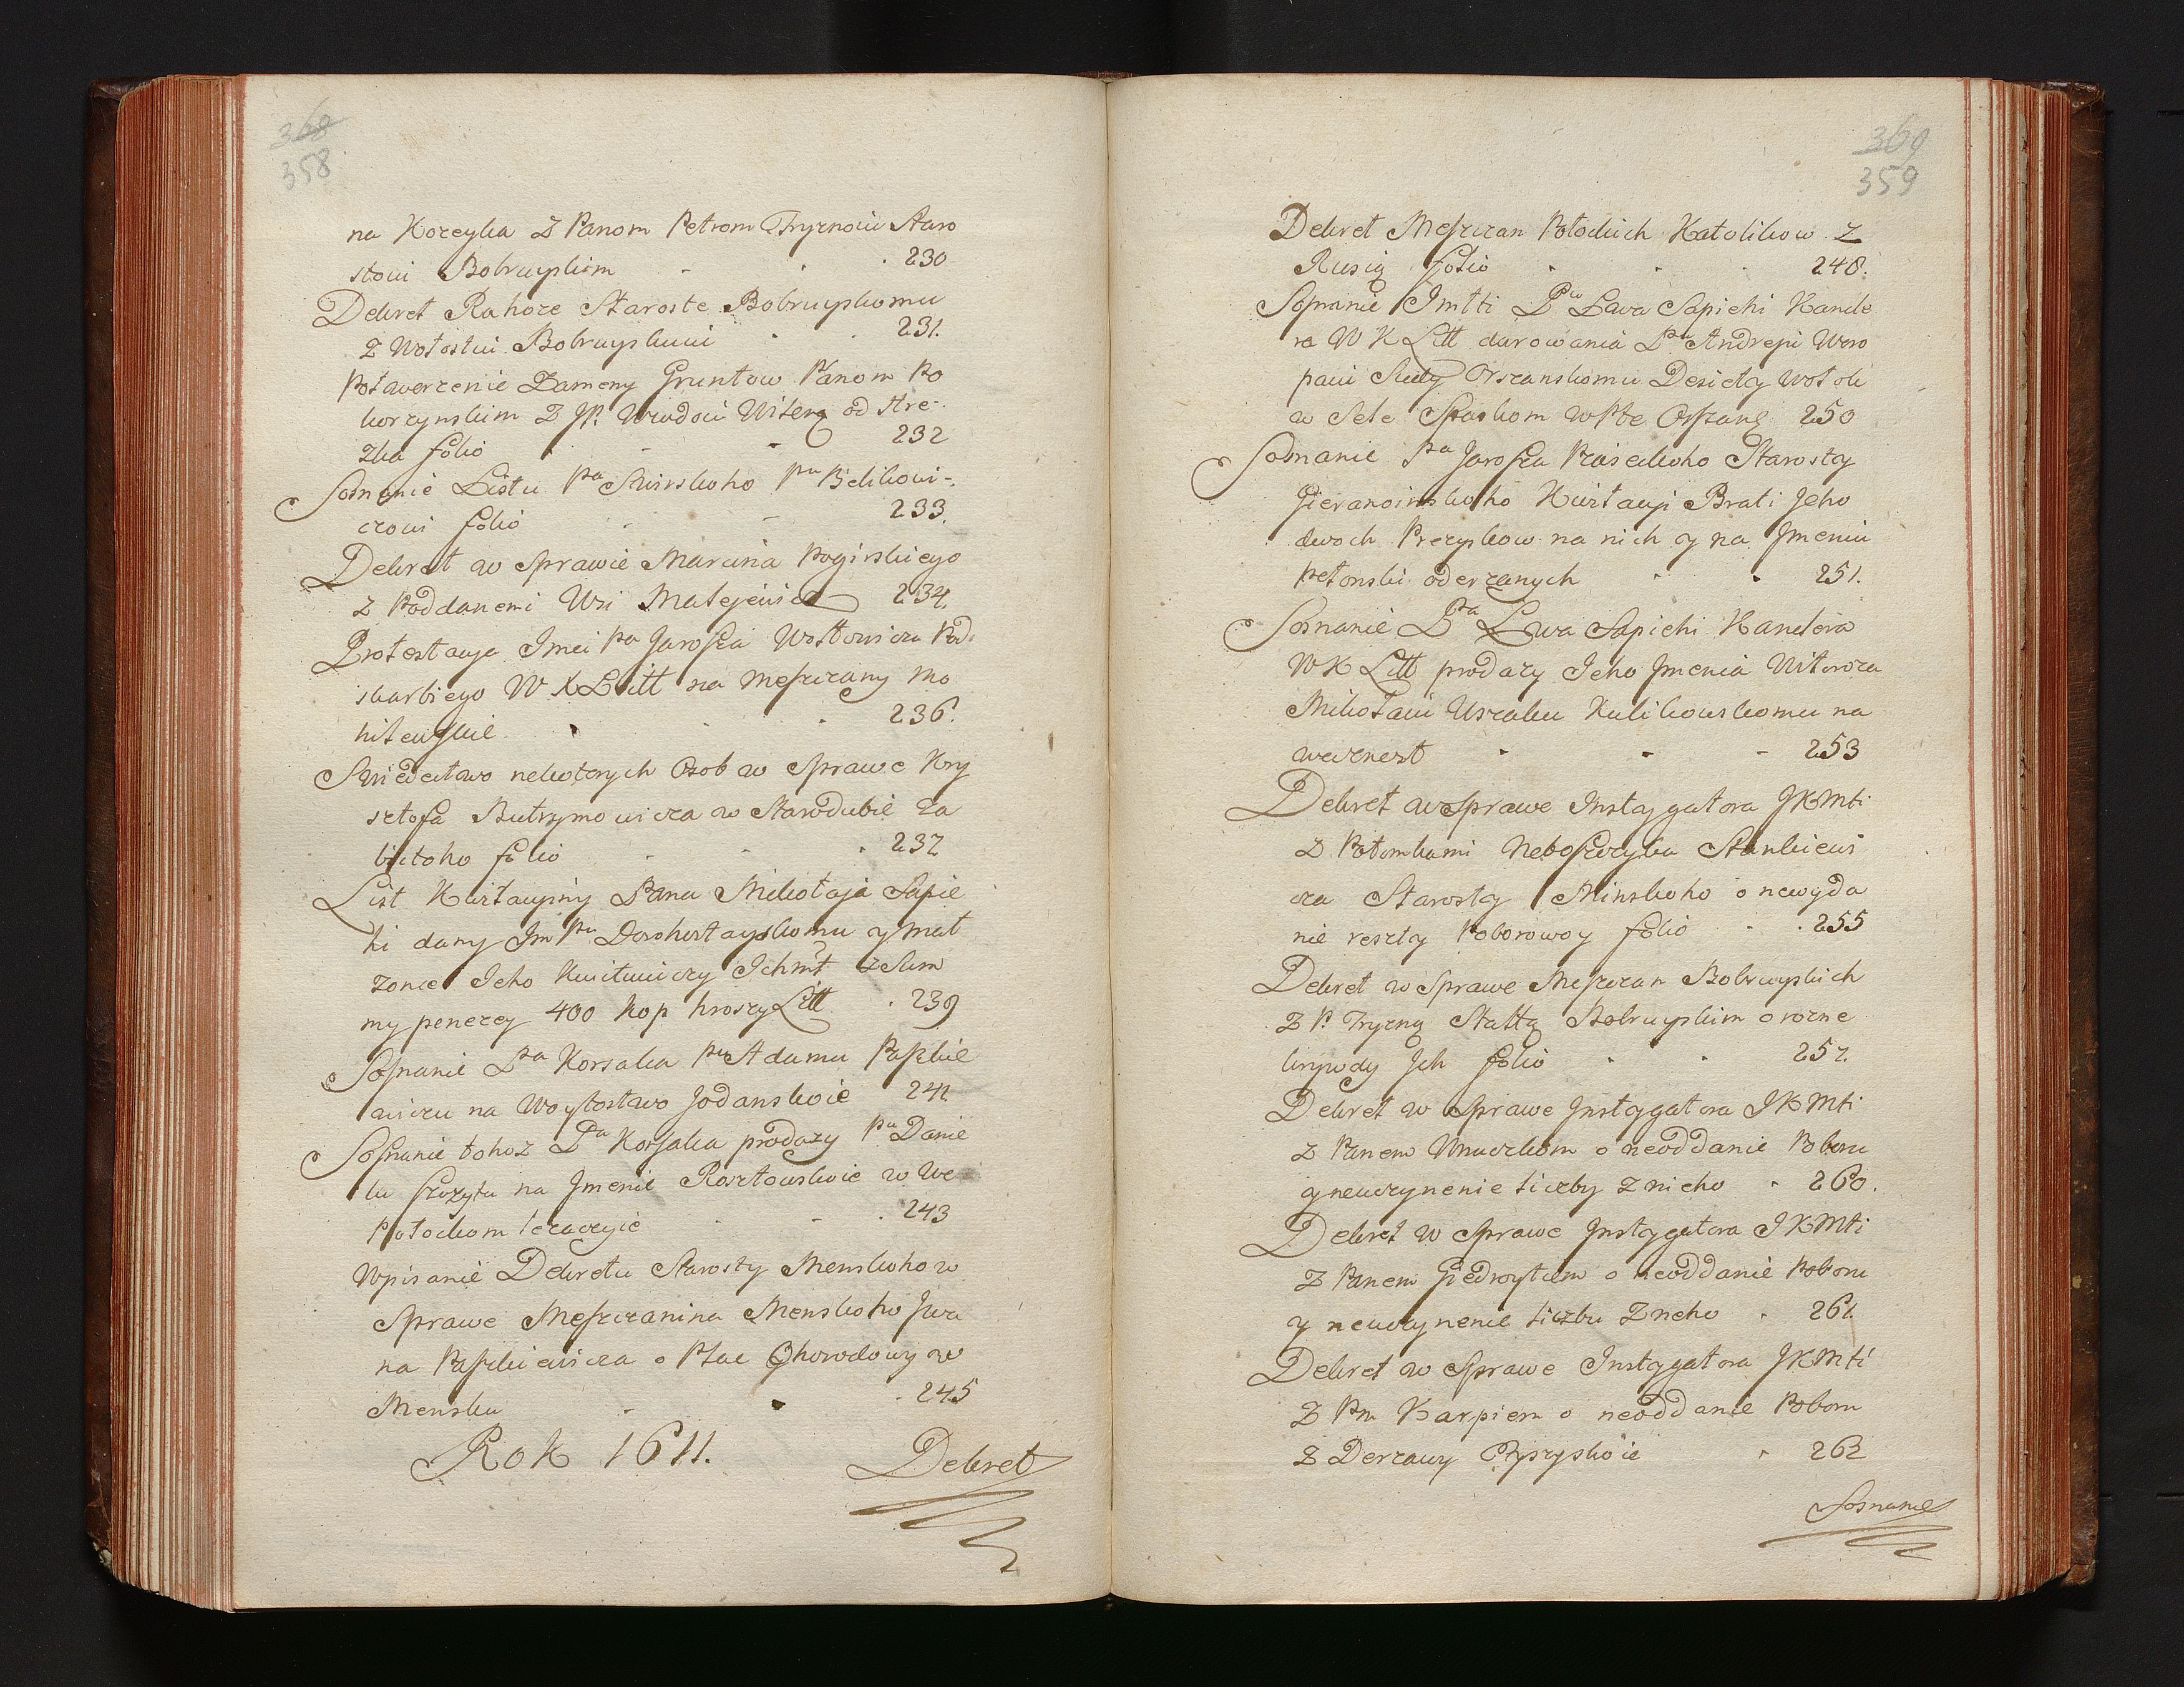 368
358
na Korcyka Z Panom Petrom Tryznoiu Staro
stoiu Bobruyskim 230
Dekret Rahoze Staroste Bobruyskomu
Z Wołostiu Bobruyskuiu 231.
Potwerzenie Zameny Gruntow Panom Po
korzynskim Z JP. Woiudoiu od Stre-
zka folio 232
Soznanie Listu Pa Swirskoho Pu Belikowi-
czowi folio 233.
Dekret w Sprawie Marcina Pogirskiego
z Poddanemi Wsi Matejewicz 234.
Protestacya Imci Pa Jarosza Wołłowicza Pod
skarbiego W X Litt na Meszczany Mo
hilewskie 236.
Swiedectwo nekotorych Osob w Sprawe Kry
sztofa Butrymowicza w Starodubie Za
bitoho folio 237
List Kwitacyiny Pana Mikołaja Sapie
hi dany Jm Pu Dorohostayskomu y Mał
zonce Jeho Kwituiuczy Ichmt z Sum
my penezey 400 Kop hroszy Litt 239
Soznanie Pa Korsaka Pu Adamu Paszkie
wiczu na Woytostwo Jodanskoie 241.
Soznanie tohoz Pa Korsaka prodazy Pu Danie
lu Szczytu na Jmenie Rosztowskoie w We
Połockom lezaczoie 243
Wpisanie Dekretu Starosty Menskoho w
Sprawe Meszczanina Menskoho Jwa
na Paszkiewicza o Plac Ghorodowy w
Mensku 245
Rok 1611.
Dekret
369
359
Dekret Meszczan Połockich Katolikow Z
Rusią folio 248.
Soznanie Jmłti Pa Lwa Sapiehi Kancle
ra W X Litt darowania Pu Andreju Woro
paiu Sudy Orszanskomu Desiety Wołok
w Sele Spaskom w Pte Orszans 250
Soznanie Pa Jarosza Starosty
Gieranoinskoho Kwitacyi Brati Jeho
dwoch Prezyskow na nich y na Jmeniu
Petonski oderzanych 251.
Soznanie Pa Lwa Sapiehi Kanclera
W X Litt prodazy Jeho Jmenia Witowza
Mikołaiu Uszaku Kulikowskomu na
wecznost 253
Dekret w Sprawe Instygatora JKMti
Z Potomkami Neboszczyka Stankiewi
cza Starosty Minskoho o newyda
nie reszty Poborowoy folio 255
Dekret w Sprawe Meszczan Bobruyskich
Z P. Tryzną Sttą Bobruyskim o rozne
krywdy Jch folio 257.
Dekret w Sprawe Instygatora JKMti
z Panem Wnuczkom o neoddanie Poboru
y neuczynenie liczby z nieho 260.
Dekret w Sprawe Instygatora JKMti
Z Panem Giedroytem o neoddanie Poboru
y neuczynenie liczbu Z neho 261.
Dekret w Sprawe Instygatora JKMti
Z Pm Karpiem o neoddanie Poboru
Z Derzawy 262
Soznanie